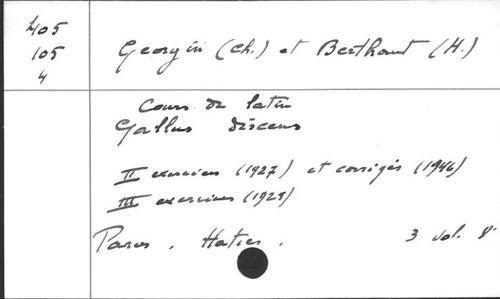 405
105
4
Georgin (Ch.) et Berthaut (H.)
Cours de latin
Gallus discens
II exercices (1927) et corrigés (1946)
III exercices (1929)
Paris. Hatier. 3 vol. 8°